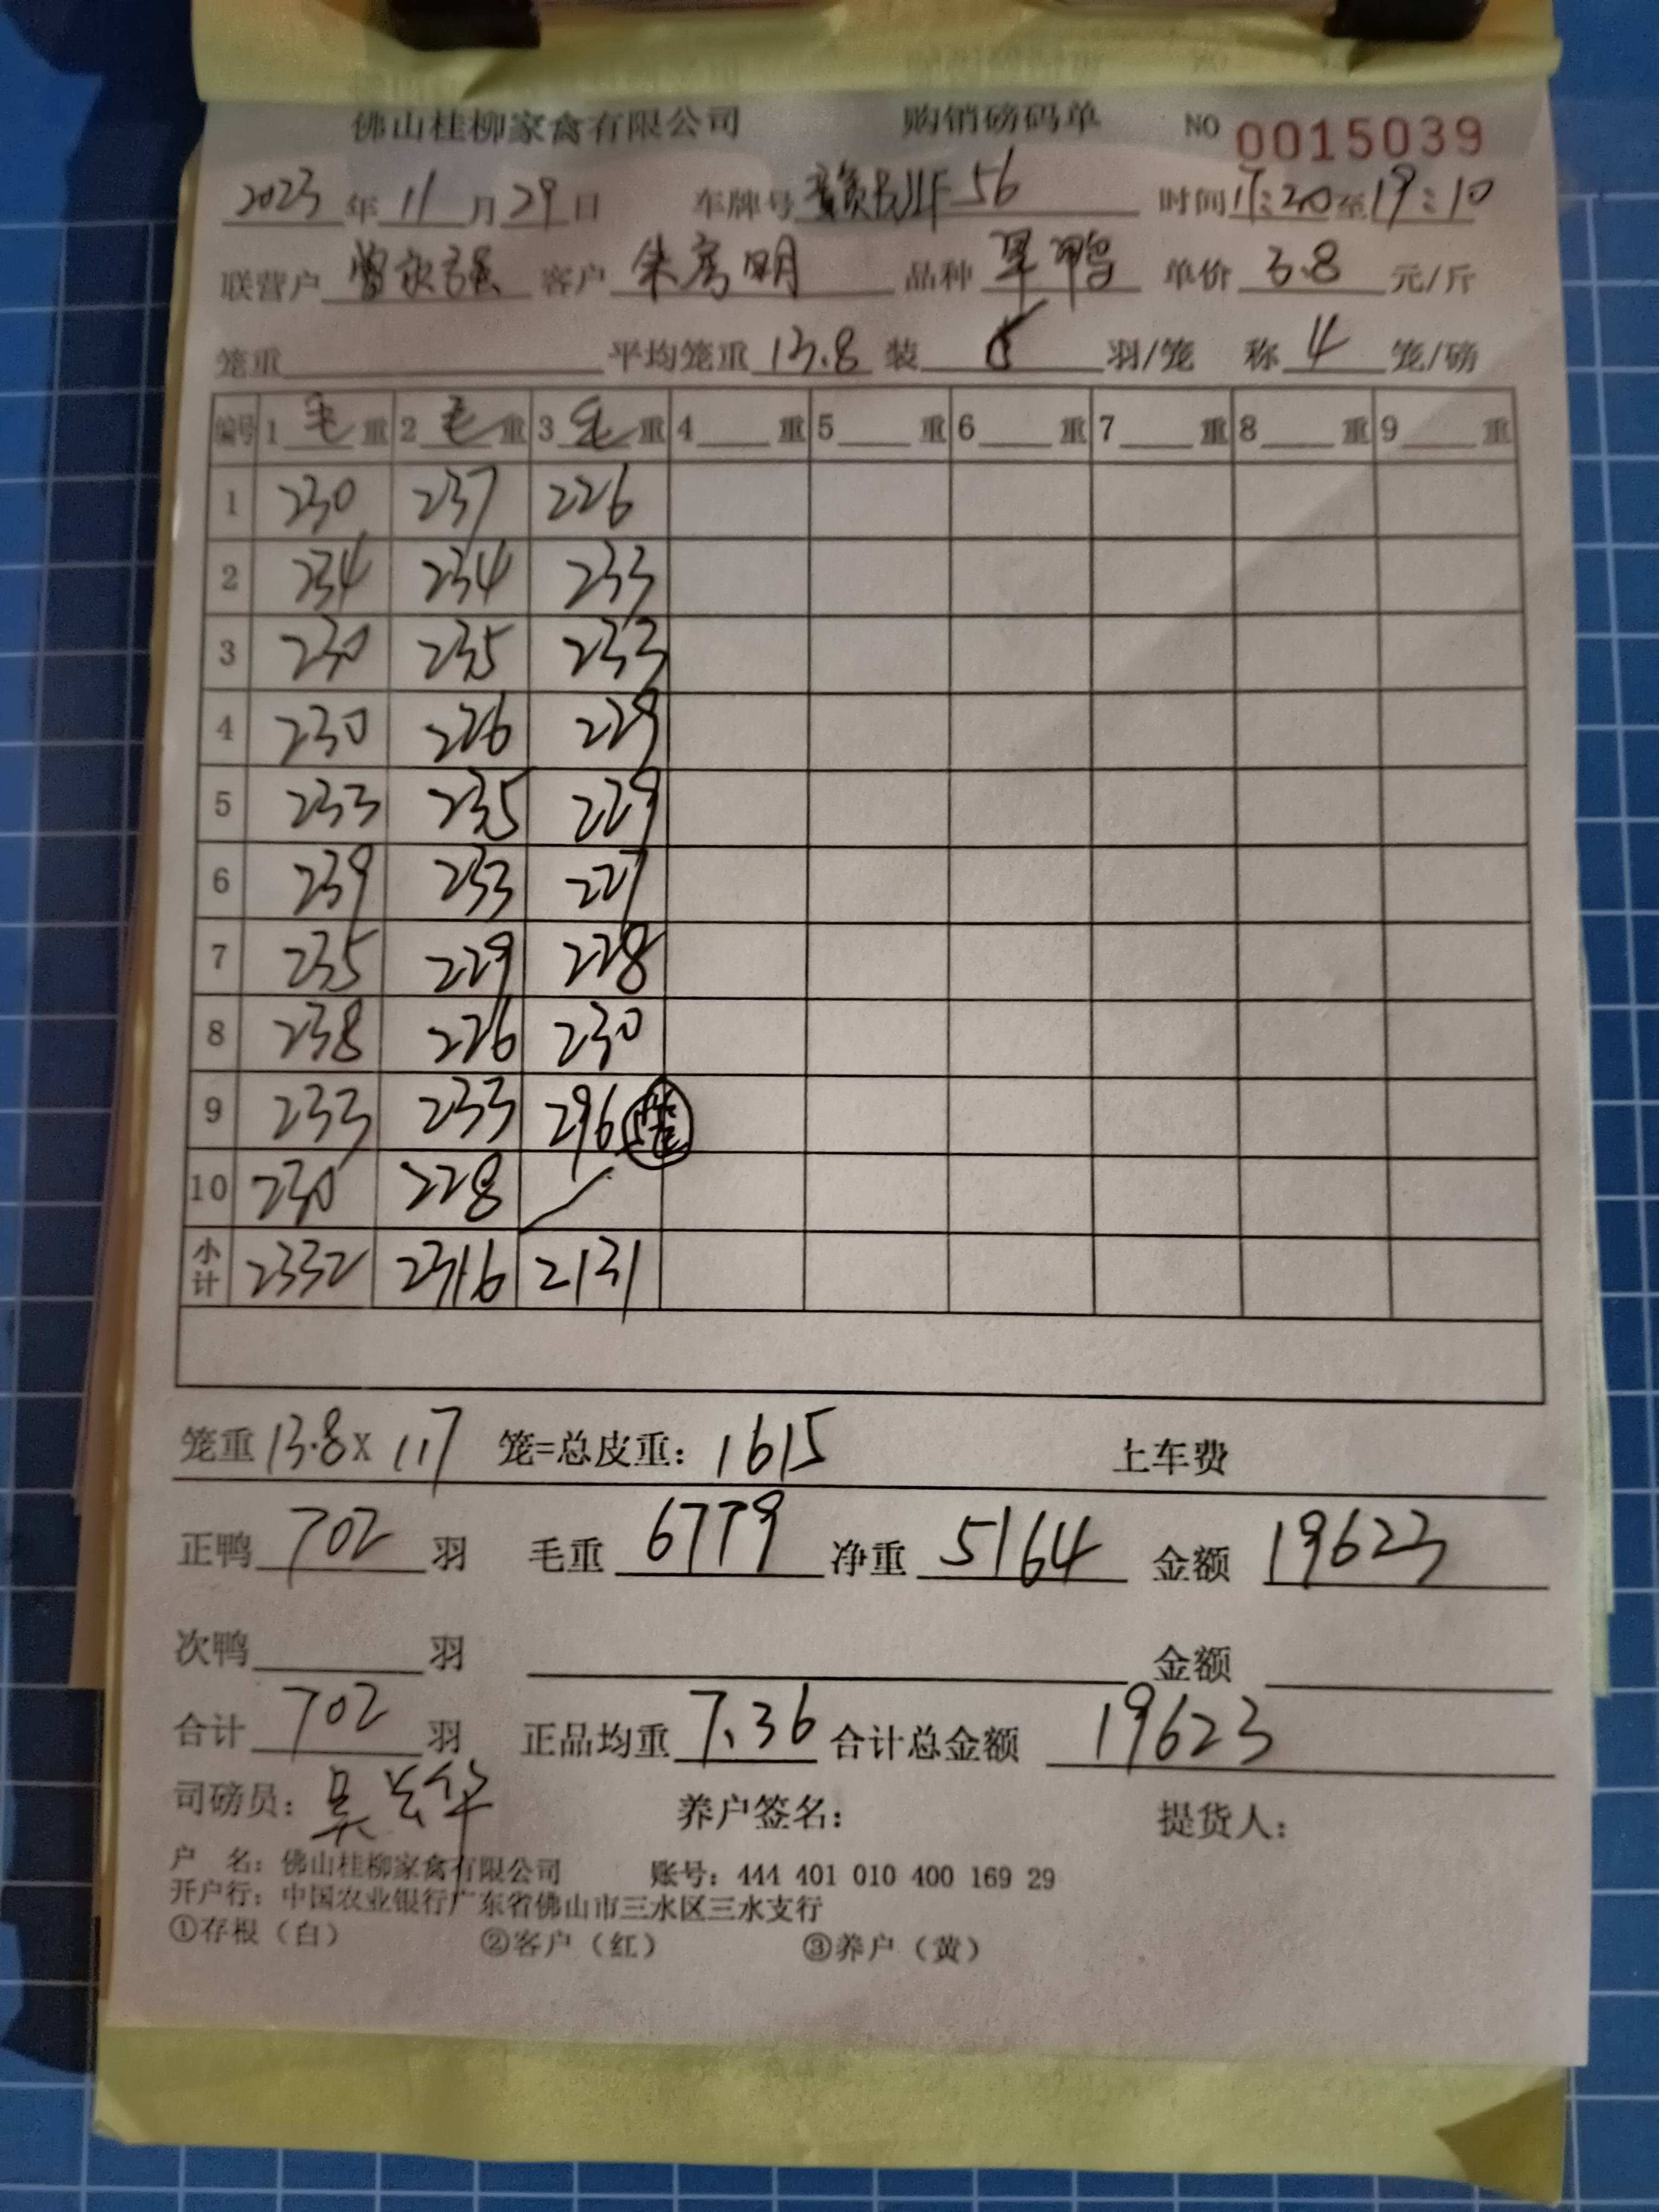 佛山桂柳家禽有限公司 购销磅码单 NO 0015039
2023年11月29日 车牌号 56 时间17:20至19:10
联营户 客户 明 品种 鸭 单价 3.8 元/斤
笼重 平均笼重 13.8 装 6 羽/笼 称 4 笼/磅
编号 1 毛 重 2 毛 重 3 毛 重 4 重 5 重 6 重 7 重 8 重 9 重
1 230 237 226
2 234 234 233
3 230 235 233
4 230 226 229
5 233 235 229
6 239 233 227
7 235 229 228
8 238 226 230
9 233 233 296
10 230 228
小计 2332 2316 2131
笼重 13.8 x 117 笼=总皮重: 1615 上车费
正鸭 702 羽 毛重 6779 净重 5164 金额 19623
次鸭 羽 金额
合计 702 羽 正品均重 7.36 合计总金额 19623
司磅员: 吴 华 养户签名: 提货人:
户 名: 佛山桂柳家禽有限公司 账号: 444 401 010 400 169 29
开户行: 中国农业银行广东省佛山市三水区三水支行
①存根（白） ②客户（红） ③养户（黄）